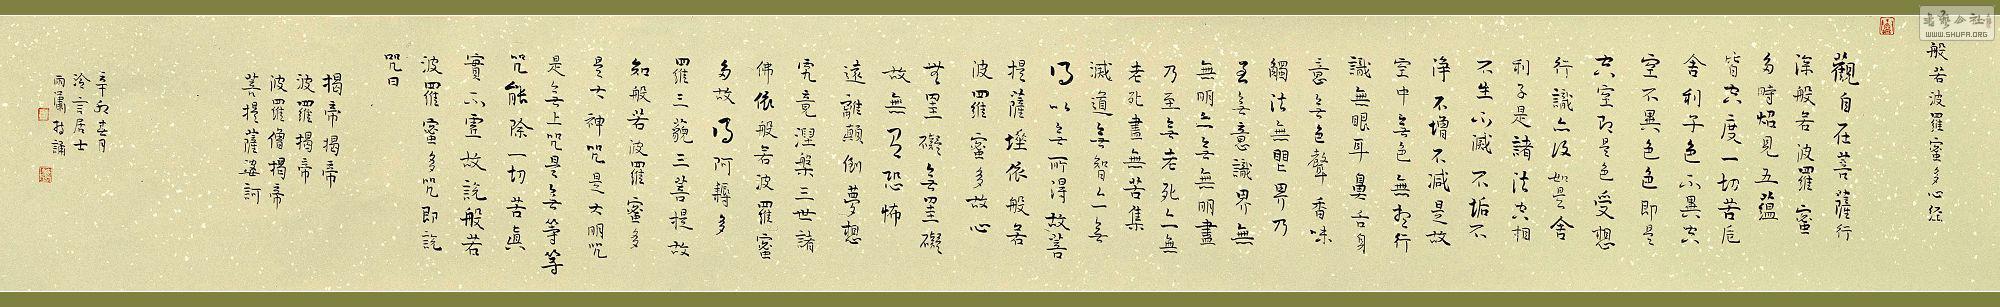 般若波羅蜜多心經
觀自在菩薩行
深般若波羅蜜
多時照見五蘊
皆空度一切苦厄
舍利子色不異空
空不異色色即是
空空即是色受想
行識亦復如是舍
利子是諸法空相
不生不滅不垢不
淨不增不減是故
空中無色無受想行
識無眼耳鼻舌身
意無色聲香味
觸法無眼界乃
至無意識界無
無明亦無無明盡
乃至無老死亦無
老死盡無苦集
滅道無智亦無
得以無所得故菩
提薩埵依般若
波羅蜜多故心
無罣礙無罣礙
故無有恐怖
遠離顛倒夢想
究竟涅槃三世諸
佛依般若波羅蜜
多故得阿耨多
羅三藐三菩提故
知般若波羅蜜多
是大神咒是大明咒
是無上咒是無等等
咒能除一切苦真
實不虛故說般若
波羅蜜多咒即說
咒曰
揭帝揭帝
波羅揭帝
波羅僧揭帝
菩提薩婆訶
辛卯春月
泠言居士
雨瀟書誦
書藝公社
WWW.SHUFA.ORG